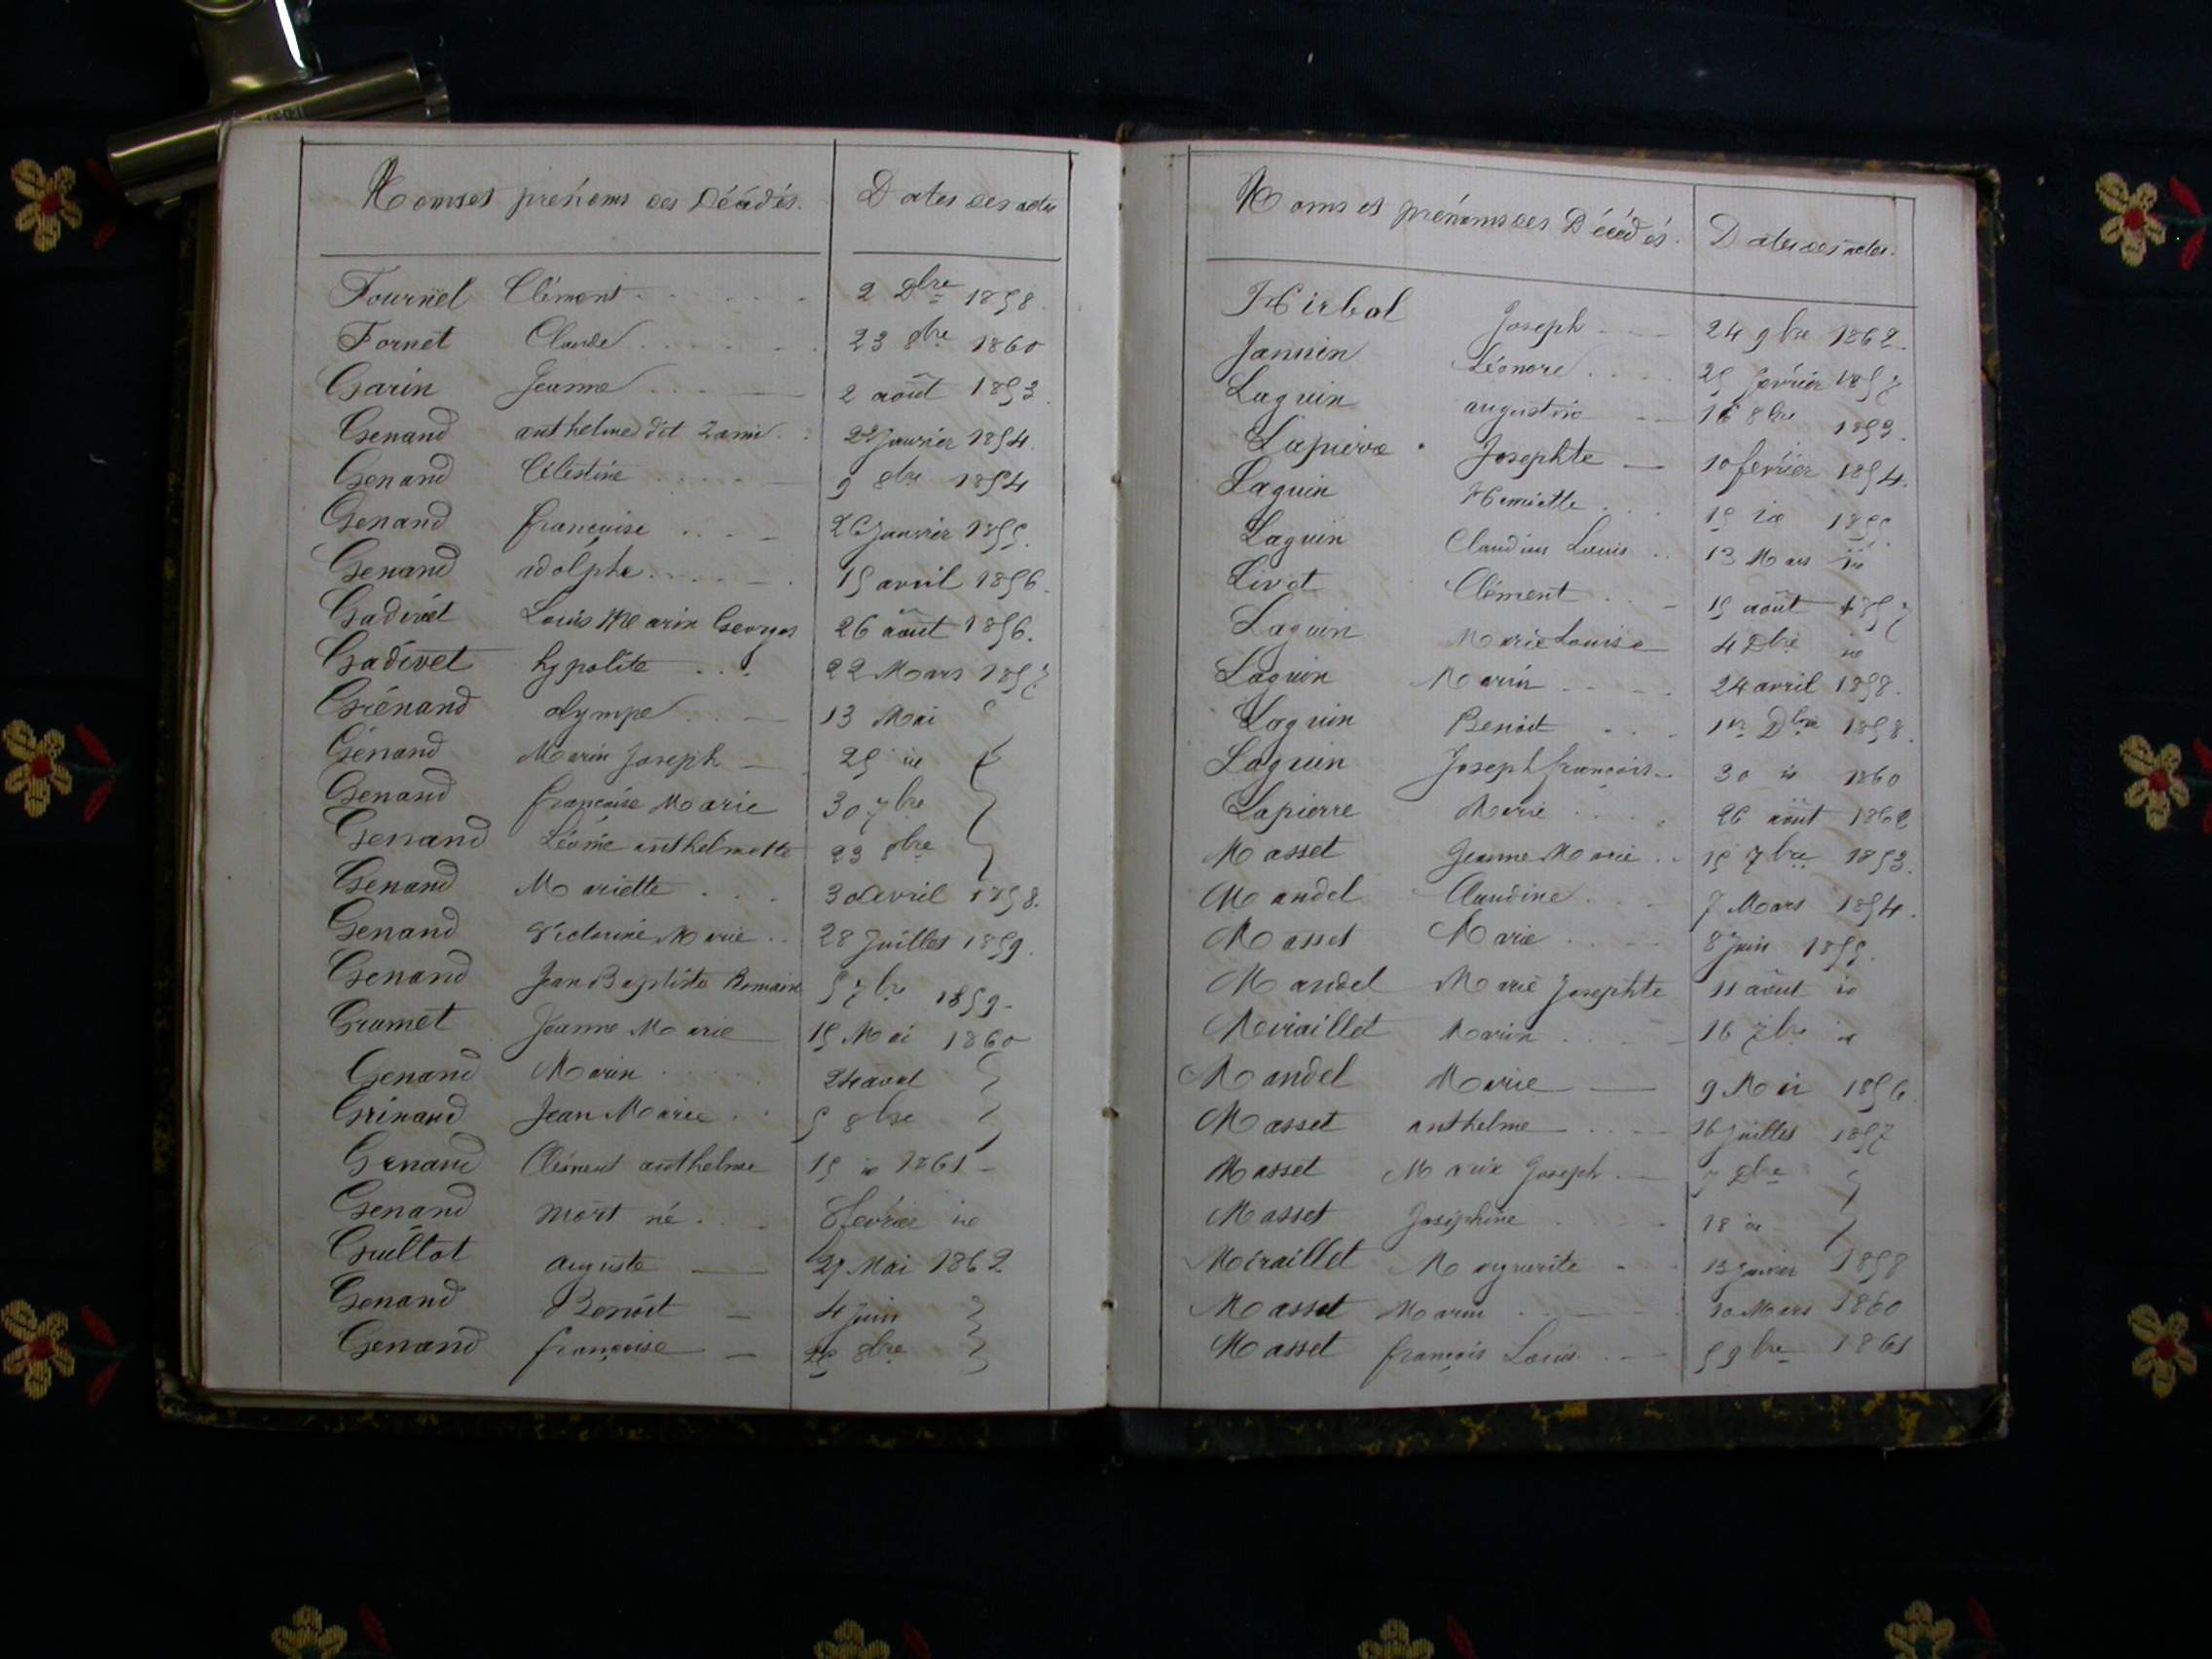 Noms et prénoms des Décédés. Dates des actes
Fournel Clément 2 Dbre 1858.
Fornet Claude 23 8bre 1860
Garin Jeanne 2 août 1853.
Genand anthelme dit Zami 22 Janvier 1854
Genand Célestine 9 8bre 1854
Genand françoise 26 Janvier 1855.
Genand adolphe 15 avril 1856.
Gadivet Louis Marin Georges 26 août 1856.
Gadivet hypolite 22 Mars 1857
Génand olympe 13 Mai
Génand Marin Joseph 25 id
Genand françoise Marie 30 7bre
Genand Léonie anthelmette 23 8bre
Genand Mariette 30 avril 1858.
Genand Victorine Marie 28 Juillet 1859.
Genand Jean Baptiste Romain 5 7bre 1859.
Grumet Jeanne Marie 15 Mai 1860
Genand Marin 24 aout
Génand Jean Marie 5 8bre
Genand Clément anthelme 15 id 1861
Genand mort né 8 février id
Guillot auguste 25 Mai 1862
Genand Benoît 4 Juin
Genand françoise 26 8bre
Noms et prénoms des Décédés. Dates des actes.
Hirbal Joseph 24 9bre 1862.
Jannin Léonore 25 février 1857
Laguin augustine 16 8bre 1853.
Lapierre Josephte 10 février 1854.
Laguin Henriette 15 id 1855.
Laguin Claudius Louis 13 Mars id
Livet Clément 15 août 1857
Laguin Marie Louise 4 Dbre id
Laguin Marin 24 avril 1858.
Laguin Benoit 1er Dbre 1858.
Laguin Joseph françois 30 id 1860
Lapierre Marie 26 août 1862
Masset Jeanne Marie 15 7bre 1853.
Mandel Claudine 7 Mars 1854.
Masset Marie 8 Juin 1855.
Mandel Marie Josephte 11 août id
Miraillet Marin 16 7bre id
Mandel Marie 9 Mai 1856.
Masset anthelme 16 Juillet 1857
Masset Marie Joseph 7 Dbre
Masset Joséphine 18 id
Miraillet Marguerite 13 Janvier 1858
Masset Marin 10 Mars 1860
Masset françois Louis 5 9bre 1861